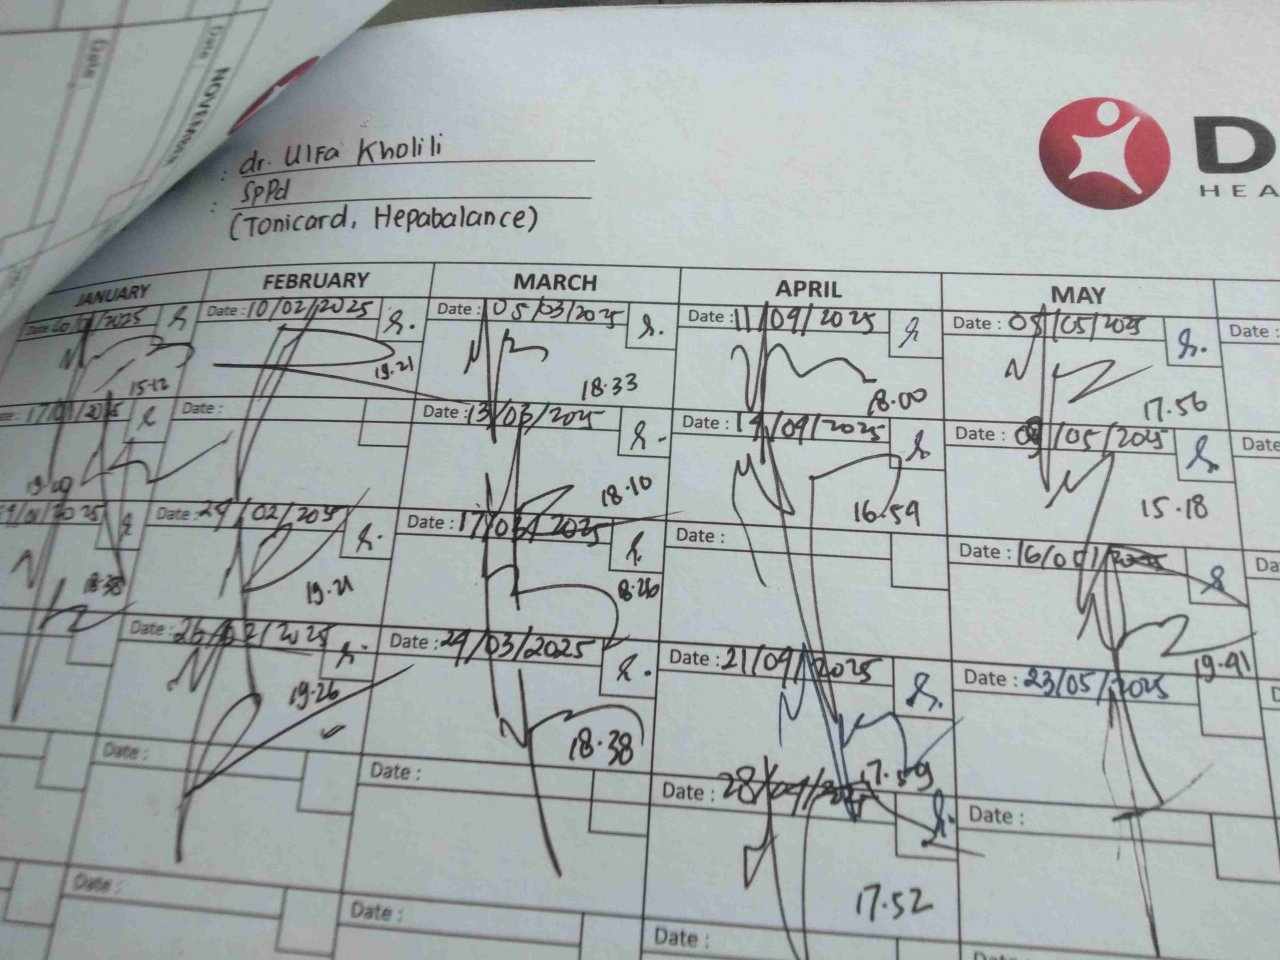 NOVEMBER
Date
Date
: dr. Ulfa Kholili
: SpPd
(Tonicard, Hepabalance)
D
HEA
JANUARY FEBRUARY MARCH APRIL MAY
Date : 10/02/2025 Date : 05/03/2025 Date : 11/04/2025 Date : 08/05/2025 Date :
15.12 19.21 18.33 18.00 17.56
17/01/2025 Date : 13/03/2025 19/04/2025 Date : 09/05/2025 Date
18.10 16.59 15.18
Date : 24/02/2025 Date : 17/03/2025 Date : Date : 16/05/ Da
18.38 19.21 18.26 19.41
Date : 26/02/2025 Date : 24/03/2025 Date : 21/04/2025 Date : 23/05/2025
19.26 18.38 17.59
Date : Date : Date : 28/04/ Date :
17.52
Date : Date : Date :